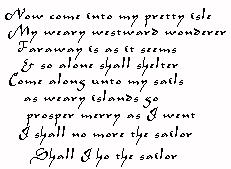 Now come into my pretty isle
My weary westward wonderer
Faraway is as it seems
& so alone shall shelter
Come along unto my sails
as weary islands go
prosper merry as I went
I shall no more the sailor
Shall I ho the sailor